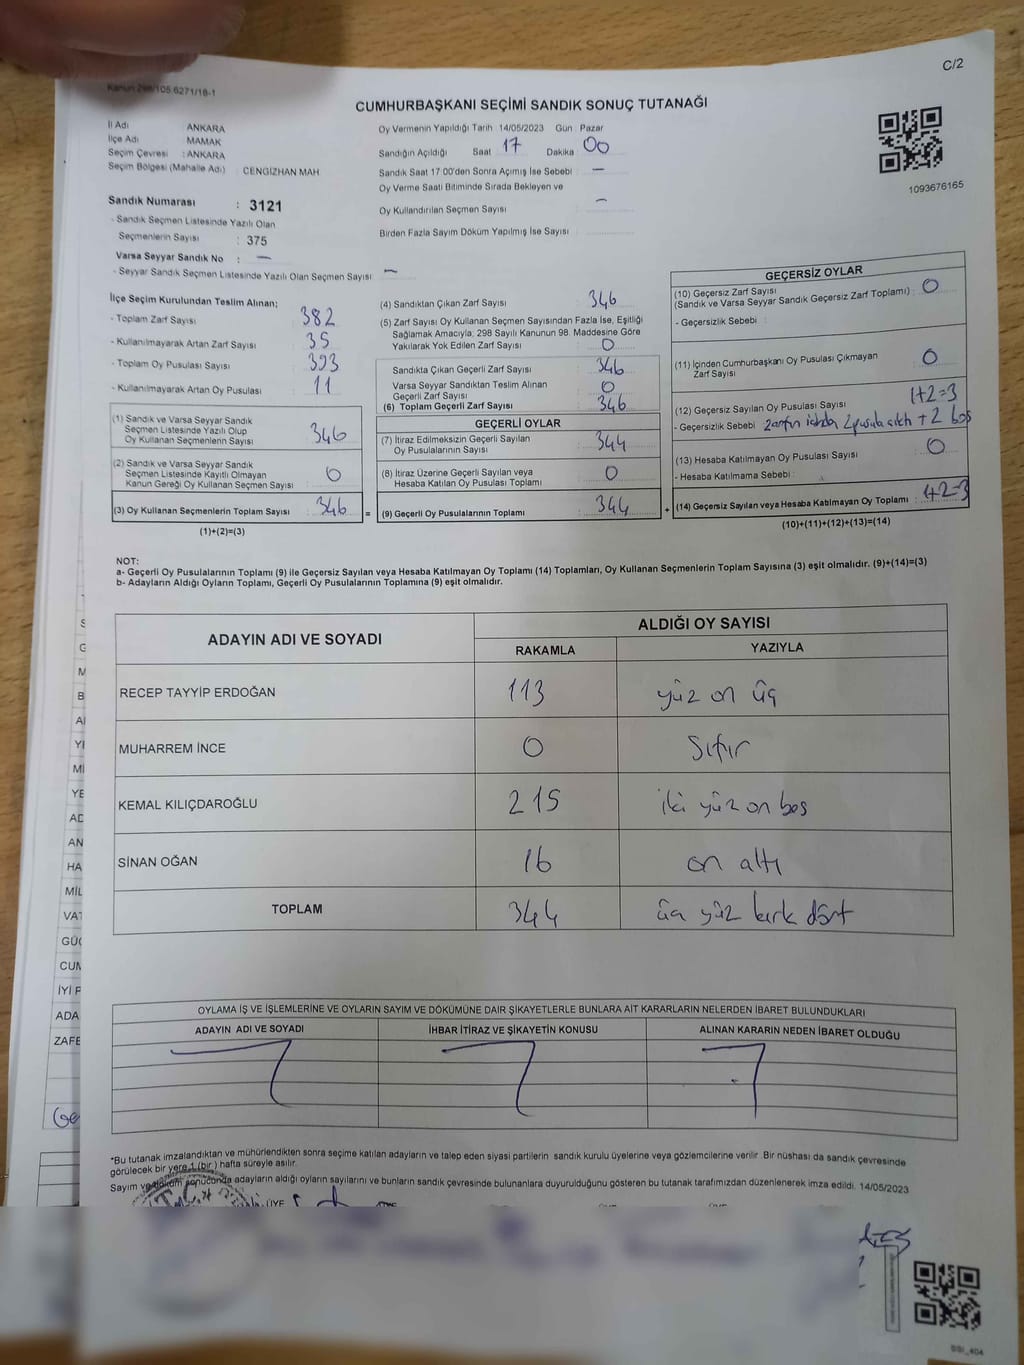 C/2
Kanun 298/105 6271/18-1
CUMHURBAŞKANI SEÇİMİ SANDIK SONUÇ TUTANAĞI
İl Adı ANKARA
İlçe Adı MAMAK
Seçim Çevresi : ANKARA
Seçim Bölgesi (Mahalle Adı) : CENGİZHAN MAH
Sandık Numarası : 3121
- Sandık Seçmen Listesinde Yazılı Olan
Seçmenlerin Sayısı : 375
Varsa Seyyar Sandık No : —
- Seyyar Sandık Seçmen Listesinde Yazılı Olan Seçmen Sayısı : —
Oy Vermenin Yapıldığı Tarih 14/05/2023 Gün Pazar
Sandığın Açıldığı Saat 17 Dakika 00
Sandık Saat 17 00'den Sonra Açımış İse Sebebi : —
Oy Verme Saati Bitiminde Sırada Bekleyen ve
Oy Kullandırılan Seçmen Sayısı : —
Birden Fazla Sayım Döküm Yapılmış İse Sayısı :
1093676165
İlçe Seçim Kurulundan Teslim Alınan;
- Toplam Zarf Sayısı : 382
- Kullanılmayarak Artan Zarf Sayısı : 35
- Toplam Oy Pusulası Sayısı : 393
- Kullanılmayarak Artan Oy Pusulası : 11
(1) Sandık ve Varsa Seyyar Sandık
Seçmen Listesinde Yazılı Olup
Oy Kullanan Seçmenlerin Sayısı : 346
(2) Sandık ve Varsa Seyyar Sandık
Seçmen Listesinde Kayıtlı Olmayan
Kanun Gereği Oy Kullanan Seçmen Sayısı : 0
(3) Oy Kullanan Seçmenlerin Toplam Sayısı : 346 =
(1)+(2)=(3)
(4) Sandıktan Çıkan Zarf Sayısı : 346
(5) Zarf Sayısı Oy Kullanan Seçmen Sayısından Fazla İse, Eşitliği
Sağlamak Amacıyla; 298 Sayılı Kanunun 98. Maddesine Göre
Yakılarak Yok Edilen Zarf Sayısı : 0
Sandıkta Çıkan Geçerli Zarf Sayısı : 346
Varsa Seyyar Sandıktan Teslim Alınan
Geçerli Zarf Sayısı : 0
(6) Toplam Geçerli Zarf Sayısı : 346
GEÇERLİ OYLAR
(7) İtiraz Edilmeksizin Geçerli Sayılan
Oy Pusulalarının Sayısı : 344
(8) İtiraz Üzerine Geçerli Sayılan veya
Hesaba Katılan Oy Pusulası Toplamı : 0
(9) Geçerli Oy Pusulalarının Toplamı : 344 +
GEÇERSİZ OYLAR
(10) Geçersiz Zarf Sayısı
(Sandık ve Varsa Seyyar Sandık Geçersiz Zarf Toplamı) : 0
- Geçersizlik Sebebi :
(11) İçinden Cumhurbaşkanı Oy Pusulası Çıkmayan
Zarf Sayısı : 0
(12) Geçersiz Sayılan Oy Pusulası Sayısı : 1+2=3
- Geçersizlik Sebebi 2 pusula + 2 boş
(13) Hesaba Katılmayan Oy Pusulası Sayısı : 0
- Hesaba Katılmama Sebebi :
(14) Geçersiz Sayılan veya Hesaba Katılmayan Oy Toplamı : 1+2=3
(10)+(11)+(12)+(13)=(14)
NOT:
a- Geçerli Oy Pusulalarının Toplamı (9) ile Geçersiz Sayılan veya Hesaba Katılmayan Oy Toplamı (14) Toplamları, Oy Kullanan Seçmenlerin Toplam Sayısına (3) eşit olmalıdır. (9)+(14)=(3)
b- Adayların Aldığı Oyların Toplamı, Geçerli Oy Pusulalarının Toplamına (9) eşit olmalıdır.
ADAYIN ADI VE SOYADI
ALDIĞI OY SAYISI
RAKAMLA YAZIYLA
RECEP TAYYİP ERDOĞAN 113 yüz on üç
MUHARREM İNCE 0 Sıfır
KEMAL KILIÇDAROĞLU 215 iki yüz on beş
SİNAN OĞAN 16 on altı
TOPLAM 344 üç yüz kırk dört
OYLAMA İŞ VE İŞLEMLERİNE VE OYLARIN SAYIM VE DÖKÜMÜNE DAİR ŞİKAYETLERLE BUNLARA AİT KARARLARIN NELERDEN İBARET BULUNDUKLARI
ADAYIN ADI VE SOYADI İHBAR İTİRAZ VE ŞİKAYETİN KONUSU ALINAN KARARIN NEDEN İBARET OLDUĞU
*Bu tutanak imzalandıktan ve mühürlendikten sonra seçime katılan adayların ve talep eden siyasi partilerin sandık kurulu üyelerine veya gözlemcilerine verilir. Bir nüshası da sandık çevresinde
görülecek bir yere 1 (bir) hafta süreyle asılır.
Sayım ve döküm sonucunda adayların aldığı oyların sayılarını ve bunların sandık çevresinde bulunanlara duyurulduğunu gösteren bu tutanak tarafımızdan düzenlenerek imza edildi. 14/05/2023
T.C.
ÜYE
AN
HA
MİL
CUM
İYİ P
ADA
ZAFE
SSI_404